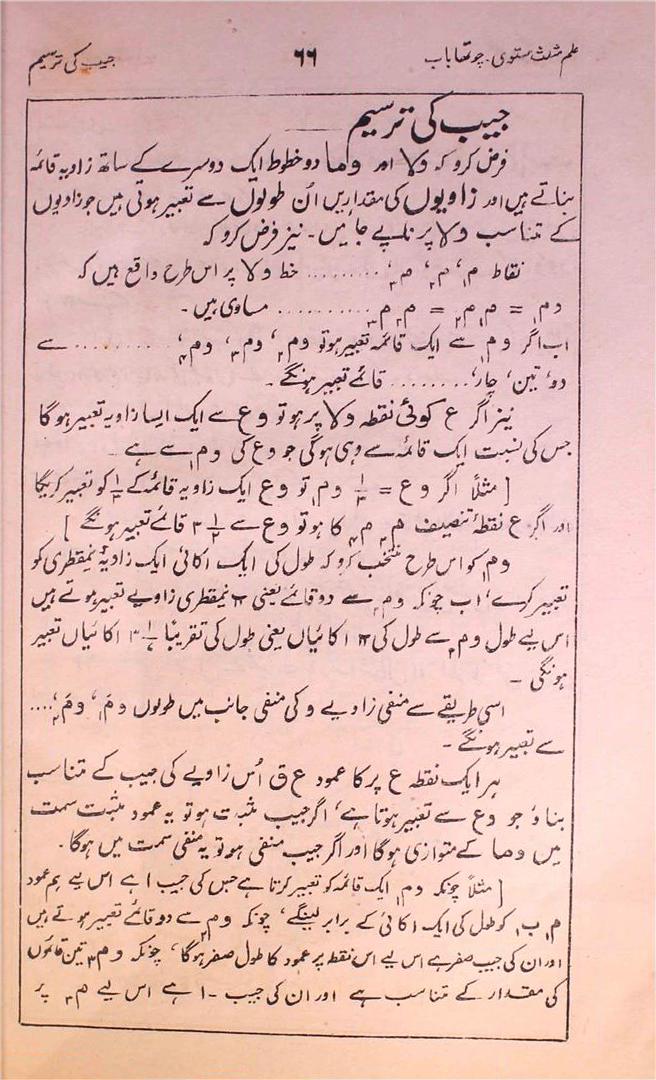 علم مثلث مستوی۔ چوتھا باب ۶۶ جیب کی ترسیم
جیب کی ترسیم
فرض کرو کہ ولا اور وما دو خطوط ایک دوسرے کے ساتھ زاویہ قائمہ
بناتے ہیں اور زاویوں کی مقداریں اُن طولوں سے تعبیر ہوتی ہیں جو زاویوں
کے متناسب ولا پر ناپے جائیں۔ نیز فرض کرو کہ
نقاط م۱، م۲، م۳، ......... خط ولا پر اس طرح واقع ہیں کہ
وم۱ = م۱م۲ = م۲م۳ ............ مساوی ہیں۔
اب اگر وم۱ سے ایک قائمہ تعبیر ہو تو وم۲، وم۳، وم۴، ......... سے
دو، تین، چار، ........ قائمے تعبیر ہونگے۔
نیز اگر ع کوئی نقطہ ولا پر ہو تو وع سے ایک ایسا زاویہ تعبیر ہوگا
جس کی نسبت ایک قائمہ سے وہی ہوگی جو وع کی وم۱ سے ہے۔
[ مثلاً اگر وع = ۱/۳ وم۱ تو وع ایک زاویہ قائمہ کے ۱/۳ کو تعبیر کریگا
اور اگر ع نقطۂ تنصیف م۳م۴ کا ہو تو وع سے ۳ ۱/۲ قائمے تعبیر ہونگے ]
وم۱ کو اس طرح منتخب کرو کہ طول کی ایک اکائی ایک زاویۂ نیمقطری کو
تعبیر کرے، اب چونکہ وم۲ سے دو قائمے یعنی π نیمقطری زاویے تعبیر ہوتے ہیں
اس لیے طول وم۲ سے طول کی π اکائیاں یعنی طول کی تقریباً ۳ ۱/۷ اکائیاں تعبیر
ہونگی۔
اسی طریقے سے منفی زاویے و کی منفی جانب میں طولوں ومَ۱، ومَ۲، ....
سے تعبیر ہونگے۔
ہر ایک نقطہ ع پر کا عمود ع ق اُس زاویے کی جیب کے متناسب
بناؤ جو وع سے تعبیر ہوتا ہے، اگر جیب مثبت ہو تو یہ عمود مثبت سمت
میں وما کے متوازی ہوگا اور اگر جیب منفی ہو تو یہ منفی سمت میں ہوگا۔
[ مثلاً چونکہ وم۱ ایک قائمہ کو تعبیر کرتا ہے جس کی جیب ۱ ہے اس لیے ہم عمود
م۱ب۱ کو طول کی ایک اکائی کے برابر لینگے، چونکہ وم۲ سے دو قائمے تعبیر ہوتے ہیں
اور ان کی جیب صفر ہے اس لیے اس نقطہ پر عمود کا طول صفر ہوگا، چونکہ وم۳ تین قائموں
کی مقدار کے متناسب ہے اور ان کی جیب -۱ ہے اس لیے م۳ پر